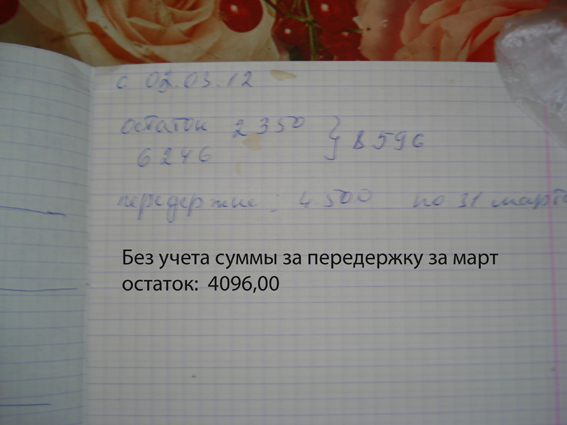 с 02.03.12
остаток 2350
6246 } 8596
передержке: 4500 по 31 марта
Без учета суммы за передержку за март
остаток: 4096,00